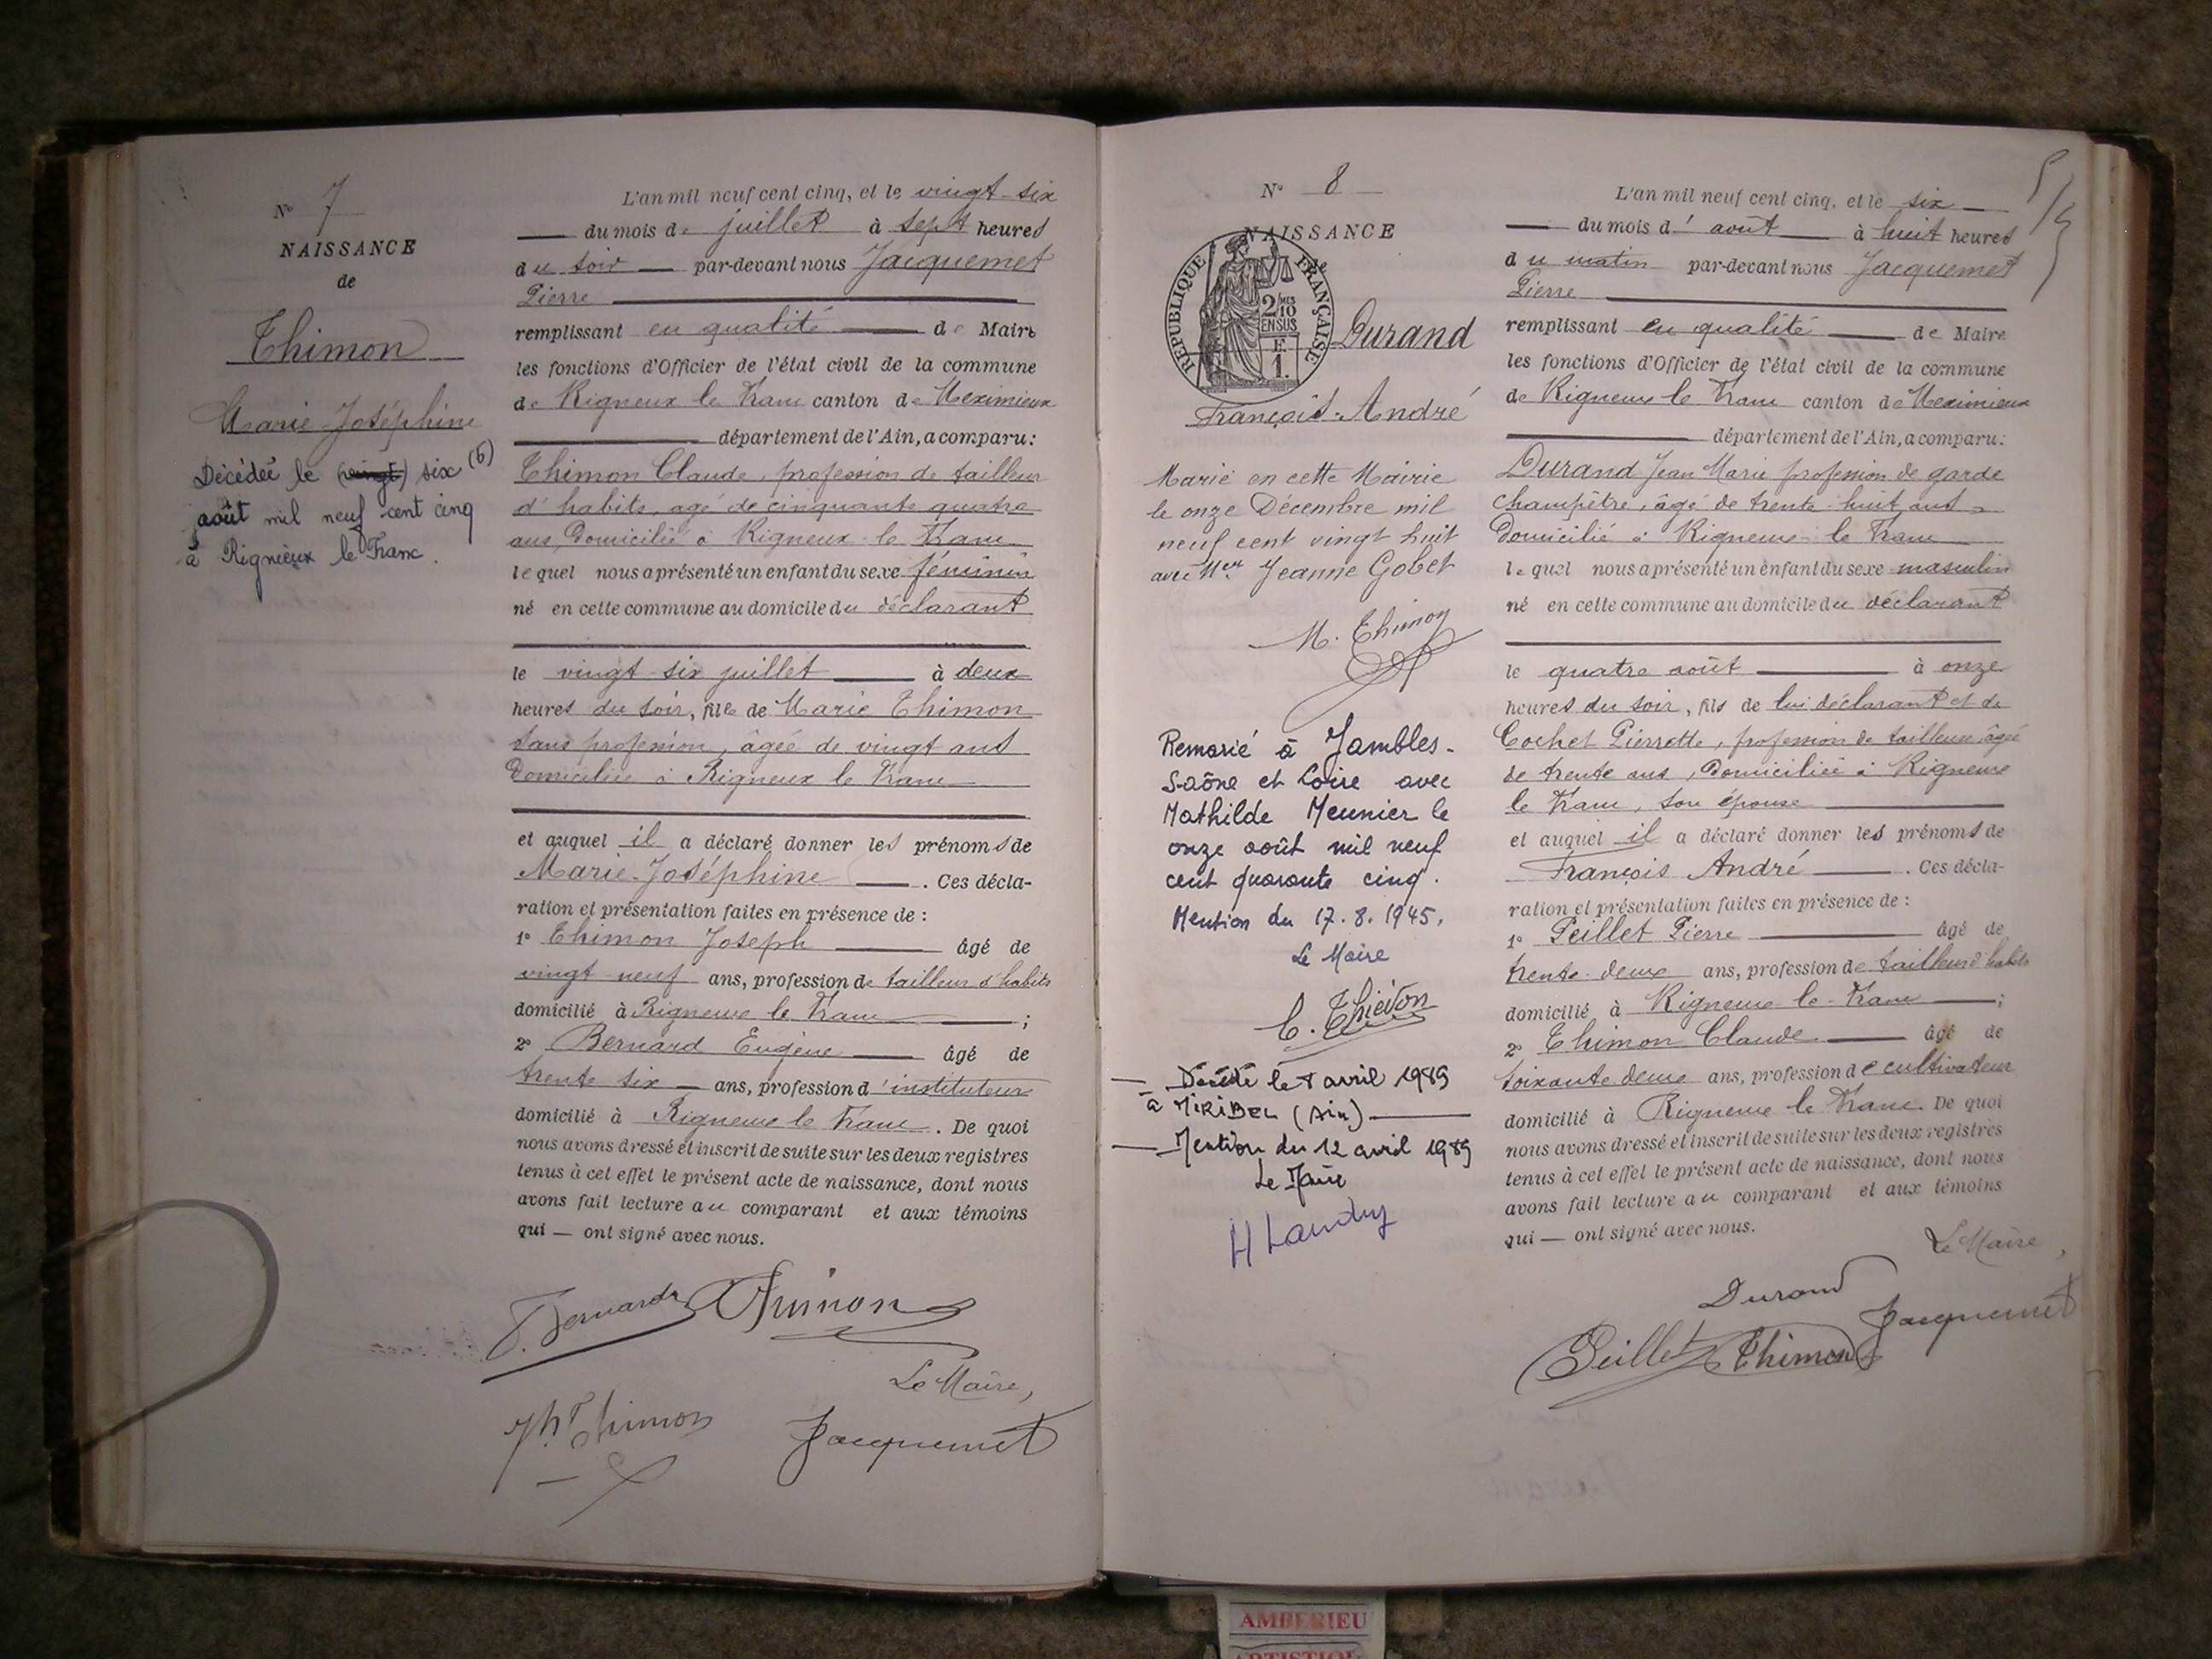 N° 7
NAISSANCE
de
Thimon
Marie-Joséphine
Décédée le (vingt) six (6)
août mil neuf cent cinq
à Rignieux le Franc.
L'an mil neuf cent cinq, et le vingt-six
du mois de juillet à sept heures
du soir par-devant nous Jacquemet
Pierre
remplissant en qualité de Maire
les fonctions d'Officier de l'état civil de la commune
de Rigneux le Franc canton de Meximieux
département de l'Ain, a comparu :
Thimon Claude, profession de tailleur
d'habits, agé de cinquante quatre
ans, Domicilié à Rigneux le Franc
lequel nous a présenté un enfant du sexe féminin
né en cette commune au domicile du déclarant
le vingt six juillet à deux
heures du soir, fille de Marie Thimon
sans profession, âgée de vingt ans
Domiciliée à Rigneux le Franc
et auquel il a déclaré donner les prénoms de
Marie-Joséphine . Ces décla-
ration et présentation faites en présence de :
1° Thimon Joseph âgé de
vingt neuf ans, profession de tailleur d'habits
domicilié à Rigneux le Franc ;
2° Bernard Eugène âgé de
trente six ans, profession d'instituteur
domicilié à Rigneux le Franc. De quoi
nous avons dressé et inscrit de suite sur les deux registres
tenus à cet effet le présent acte de naissance, dont nous
avons fait lecture au comparant et aux témoins
qui — ont signé avec nous.
E. Bernard Thimon
Le Maire,
Jh Thimon Jacquemet
N° 8
NAISSANCE
de
RÉPUBLIQUE FRANÇAISE
2/10 MES
EN SUS
E
1.
Durand
François-André
Marié en cette Mairie
le onze Décembre mil
neuf cent vingt huit
avec Melle Jeanne Gobet
M. Thimon
Remarié à Jambles-
Saône et Loire avec
Mathilde Meunier le
onze août mil neuf
cent quarante cinq.
Mention du 17.8.1945.
Le Maire
C. Thiévon
Décédé le 8 avril 1989
à MIRIBEL (Ain)
Mention du 12 avril 1989
Le Maire
H Landry
L'an mil neuf cent cinq, et le six
du mois d'août à huit heures
du matin par-devant nous Jacquemet
Pierre
remplissant en qualité de Maire
les fonctions d'Officier de l'état civil de la commune
de Rigneux le Franc canton de Meximieux
département de l'Ain, a comparu :
Durand Jean Marie profession de garde
champêtre, âgé de trente-huit ans
Domicilié à Rigneux le Franc
lequel nous a présenté un enfant du sexe masculin
né en cette commune au domicile du déclarant
le quatre août à onze
heures du soir, fils de lui déclarant et de
Cochet Pierrette, profession de tailleuse âgée
de trente ans, Domiciliée à Rigneux
le Franc, son épouse
et auquel il a déclaré donner les prénoms de
François André . Ces décla-
ration et présentation faites en présence de :
1° Peillet Pierre âgé de
trente-deux ans, profession de tailleur d'habits
domicilié à Rigneux le Franc ;
2° Thimon Claude âgé de
soixante deux ans, profession de cultivateur
domicilié à Rigneux le Franc. De quoi
nous avons dressé et inscrit de suite sur les deux registres
tenus à cet effet le présent acte de naissance, dont nous
avons fait lecture au comparant et aux témoins
qui — ont signé avec nous.
Le Maire,
Durand Jacquemet
Peillet Thimon
AMBERIEU